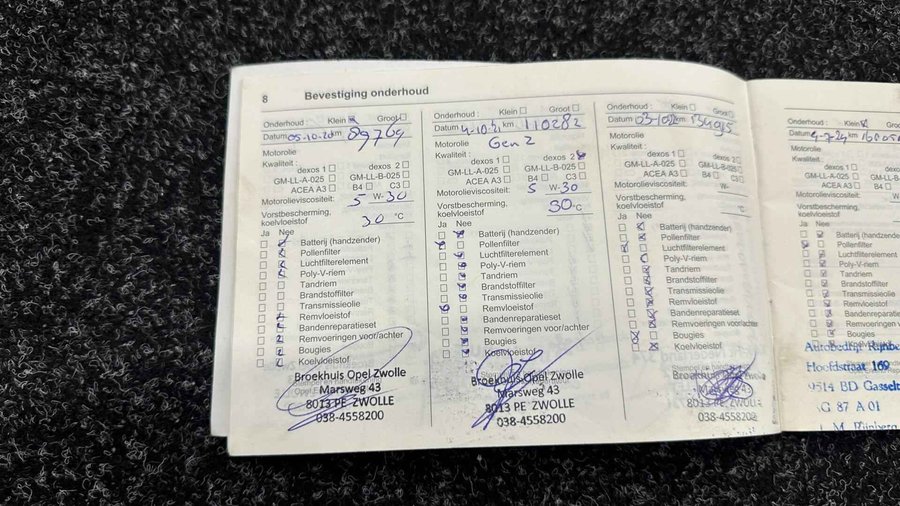 8 Bevestiging onderhoud
Onderhoud : Klein Groot
Datum 05-10-20 km 89769
Motorolie
Kwaliteit :
dexos 1 dexos 2
GM-LL-A-025 GM-LL-B-025
ACEA A3 B4 C3
Motorolieviscositeit: 5 W-30
Vorstbescherming,
koelvloeistof 30 °C
Ja Nee
Batterij (handzender)
Pollenfilter
Luchtfilterelement
Poly-V-riem
Tandriem
Brandstoffilter
Transmissieolie
Remvloeistof
Bandenreparatieset
Remvoeringen voor/achter
Bougies
Koelvloeistof
Broekhuis Opel Zwolle
Marsweg 43
8013 PE ZWOLLE
038-4558200
Onderhoud : Klein Groot
Datum 4-10-21 km 110282
Motorolie Gen 2
Kwaliteit :
dexos 1 dexos 2
GM-LL-A-025 GM-LL-B-025
ACEA A3 B4 C3
Motorolieviscositeit: 5 W-30
Vorstbescherming,
koelvloeistof 30 °C
Ja Nee
Batterij (handzender)
Pollenfilter
Luchtfilterelement
Poly-V-riem
Tandriem
Brandstoffilter
Transmissieolie
Remvloeistof
Bandenreparatieset
Remvoeringen voor/achter
Bougies
Koelvloeistof
Broekhuis Opel Zwolle
Marsweg 43
8013 PE ZWOLLE
038-4558200
Onderhoud : Klein Groot
Datum km
Motorolie
Kwaliteit :
dexos 1 dexos 2
GM-LL-A-025 GM-LL-B-025
ACEA A3 B4 C3
Motorolieviscositeit: W-
Vorstbescherming,
koelvloeistof °C
Ja Nee
Batterij (handzender)
Pollenfilter
Luchtfilterelement
Poly-V-riem
Tandriem
Brandstoffilter
Transmissieolie
Remvloeistof
Bandenreparatieset
Remvoeringen voor/achter
Bougies
Koelvloeistof
Broekhuis Zwolle
8013 PE ZWOLLE
038-4558200
Onderhoud : Klein Groot
Datum 4-7-24 km
Motorolie
Kwaliteit :
dexos 1
GM-LL-A-025
ACEA A3
Motorolieviscositeit:
Vorstbescherming,
koelvloeistof
Ja Nee
Batterij (handzender)
Pollenfilter
Luchtfilterelement
Poly-V-riem
Tandriem
Brandstoffilter
Transmissieolie
Remvloeistof
Bandenreparatieset
Remvoeringen voor/
Bougies
Koelvloeistof
Autobedrijf
Hoofdstraat 169
9514 BD Gasselt
G 87 A 01